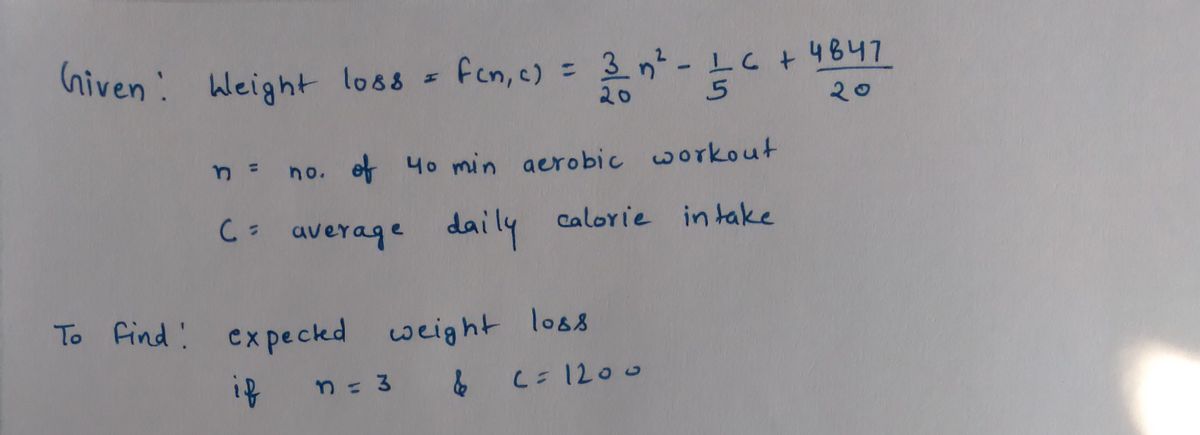 Given: Weight loss = f(n,c) = 3/20 n² - 1/5 c + 4847/20
n = no. of 40 min aerobic workout
C = average daily calorie intake
To find: expected weight loss
if n = 3 & C = 1200